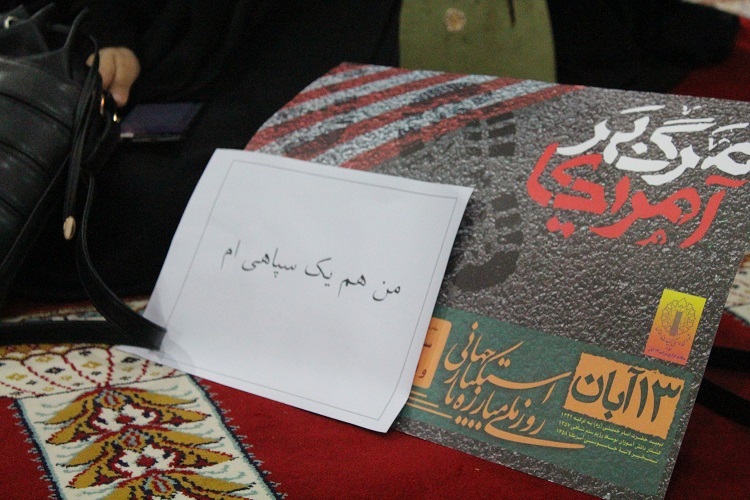 مرگ بر
آمریکا
من هم یک سپاهی ام
۱۳ آبان
روز ملی مبارزه با
استکبار جهانی